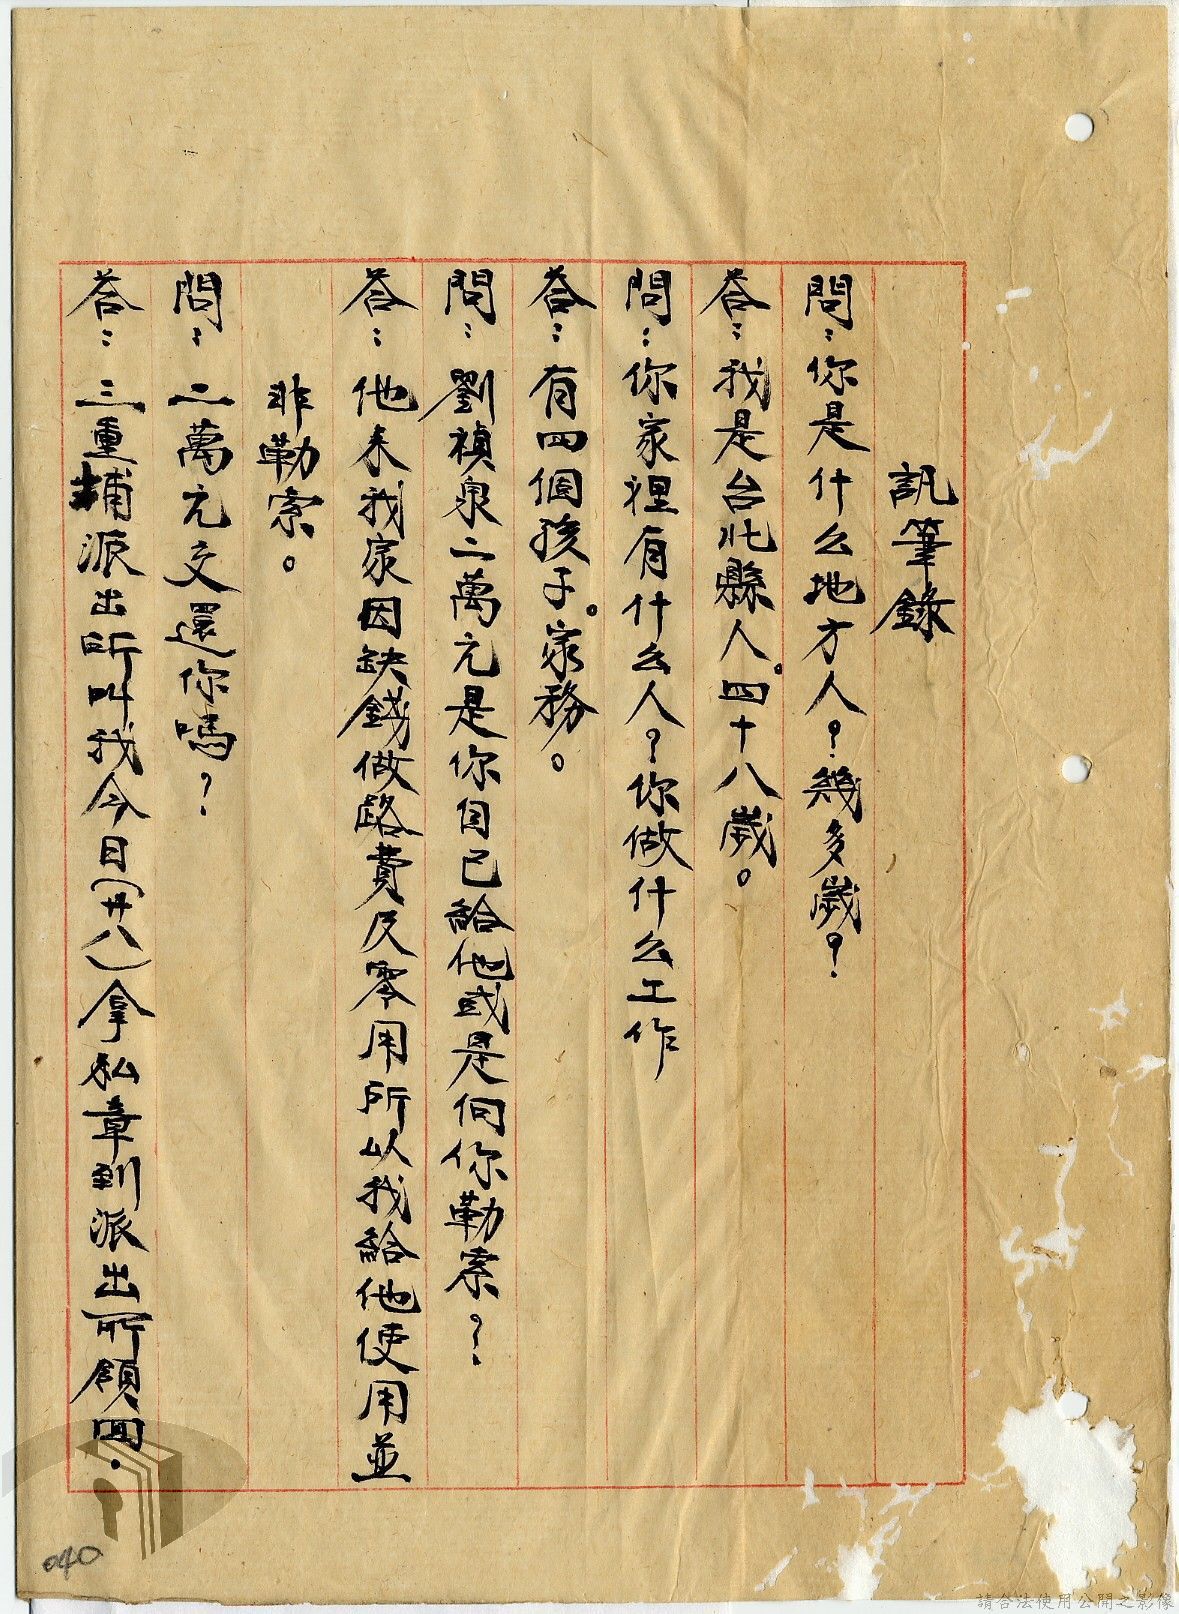 訊筆錄
問：你是什么地方人？幾多歲？
答：我是台北縣人。四十八歲。
問：你家裡有什么人？你做什么工作
答：有四個孩子。家務。
問：劉禎泉二萬元是你自己給他或是向你勒索？
答：他來我家因缺錢做路費及零用所以我給他使用並
非勒索。
問：二萬元交還你嗎？
答：三重埔派出所叫我今日（廿八）拿私章到派出所領回．
040
請合法使用公開之影像